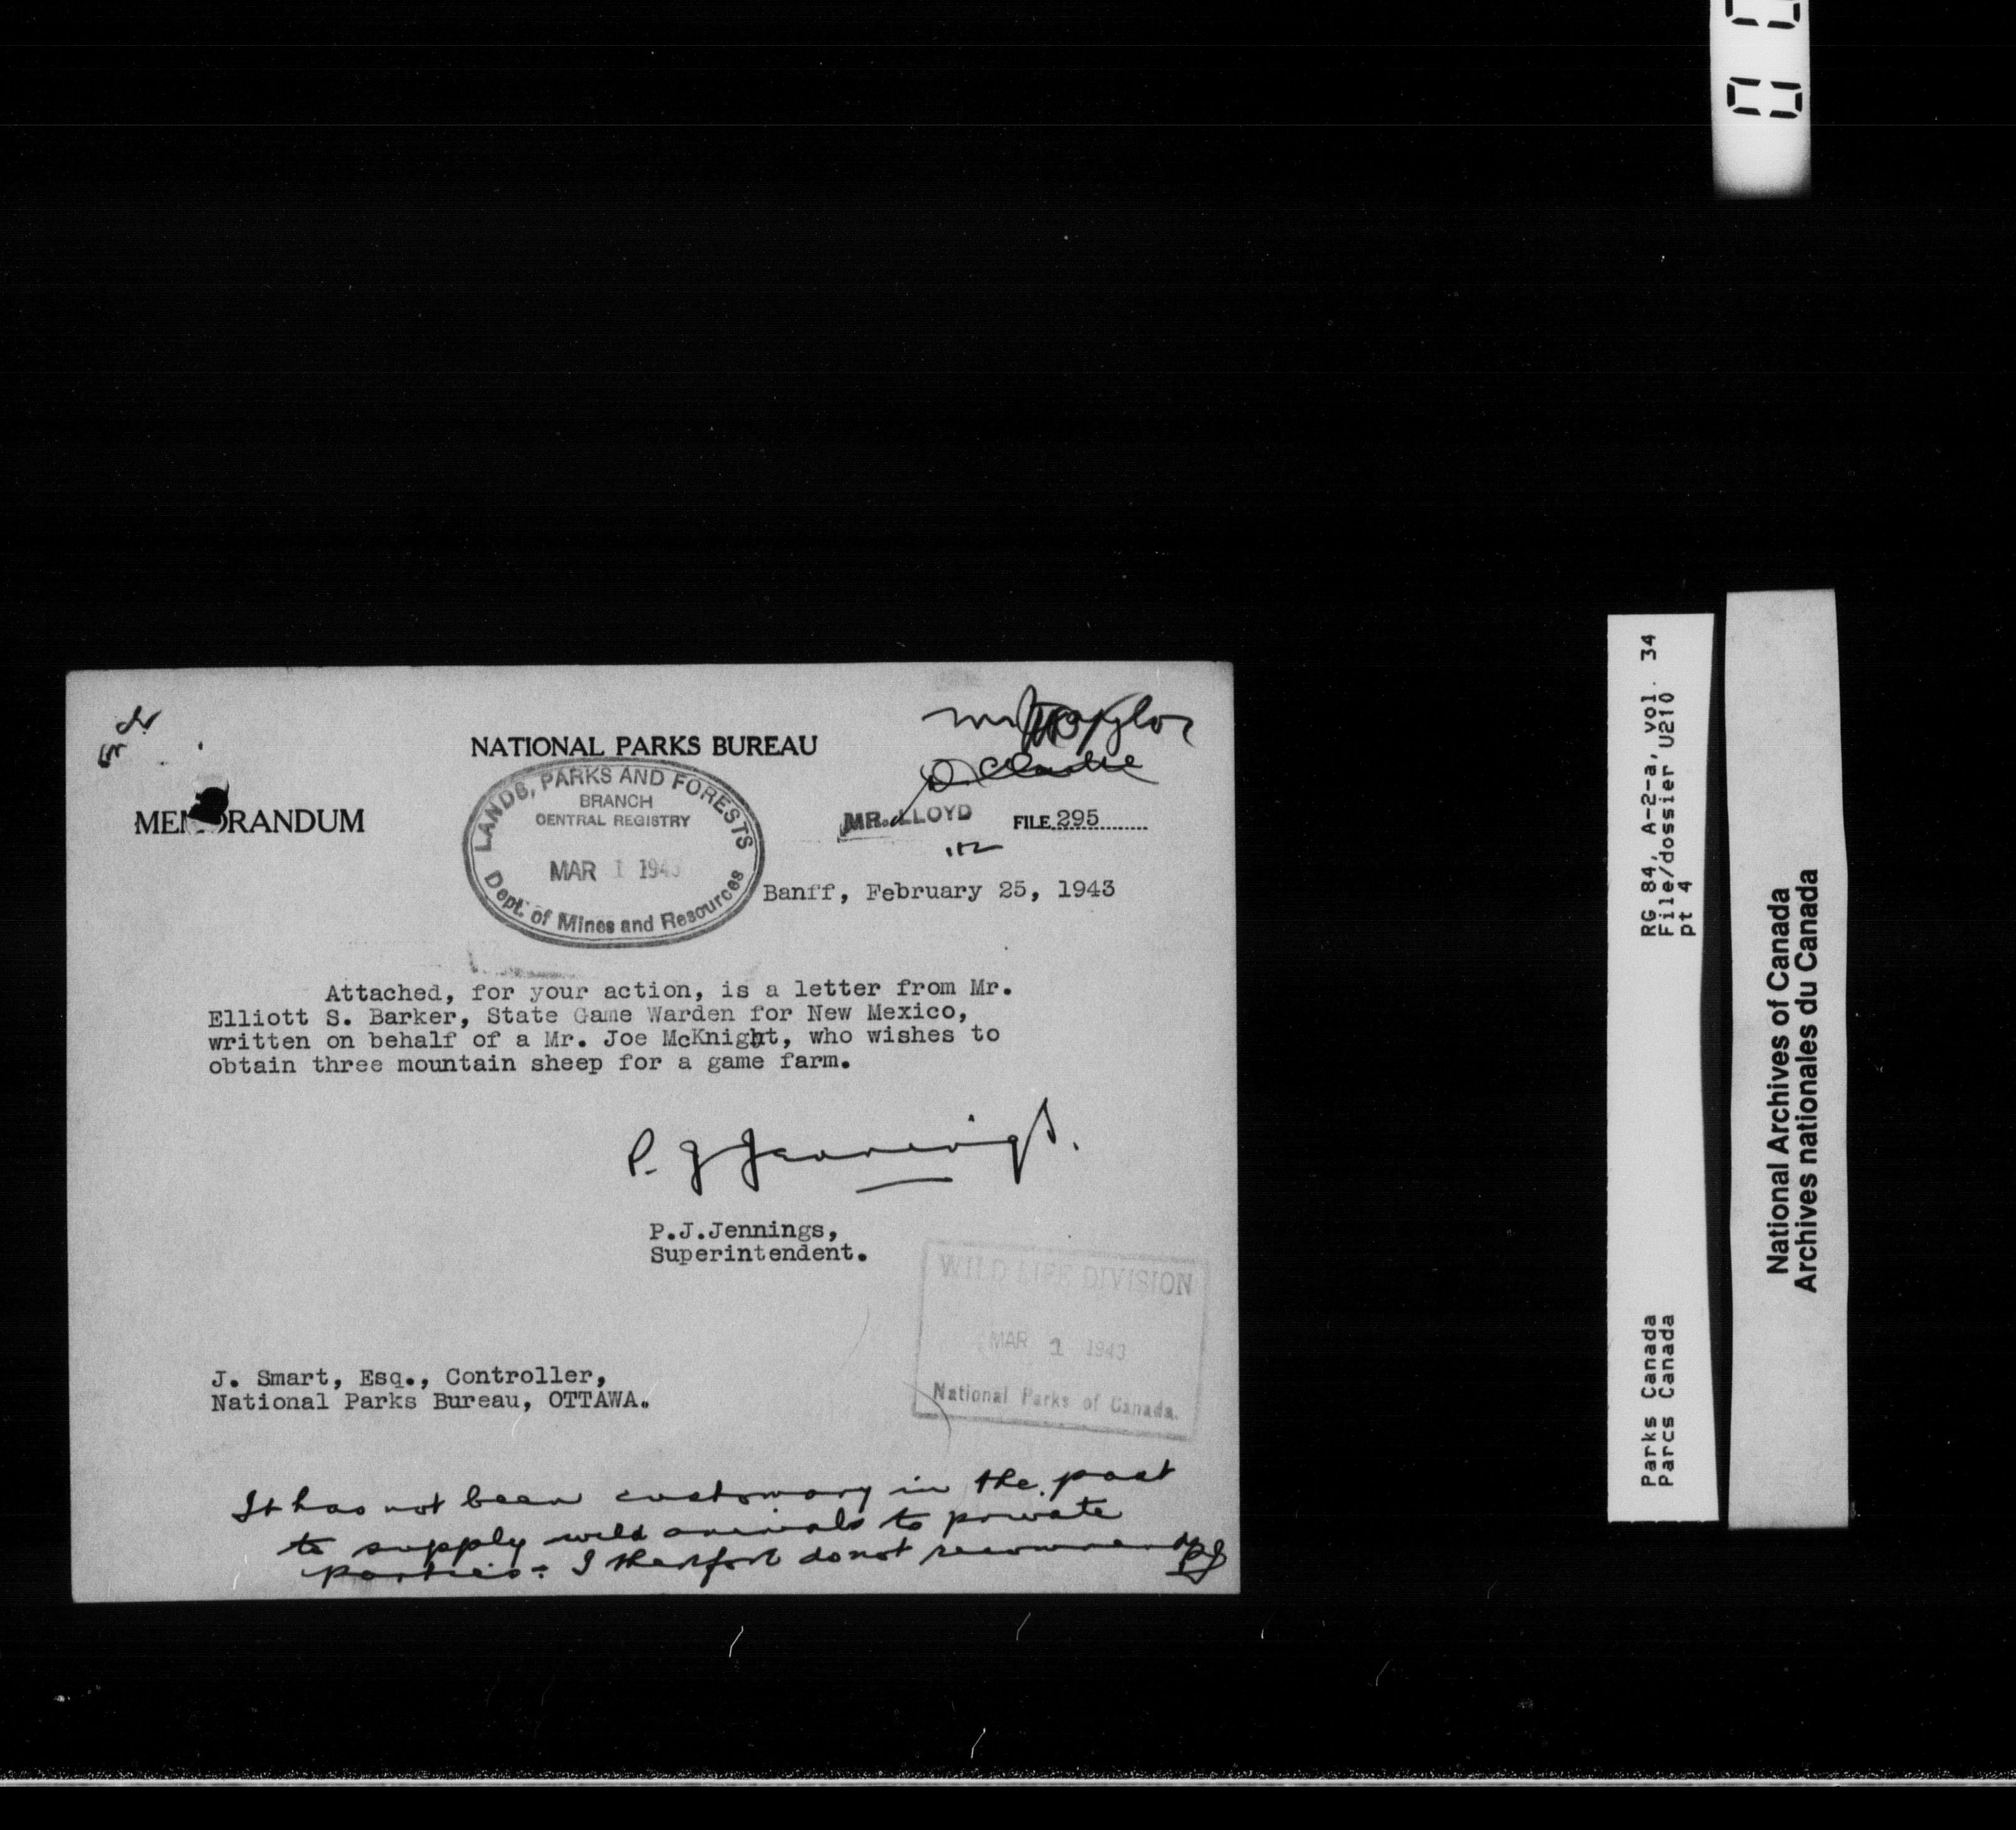 NATIONAL PARKS BUREAU
Mr Taylor
Dr. Clarke
MEMORANDUM
LANDS, PARKS AND FORESTS
BRANCH
CENTRAL REGISTRY
MAR 1 1943
Dept. of Mines and Resources
MR. LLOYD
FILE 295
Banff, February 25, 1943
Attached, for your action, is a letter from Mr.
Elliott S. Barker, State Game Warden for New Mexico,
written on behalf of a Mr. Joe McKnight, who wishes to
obtain three mountain sheep for a game farm.
P. J Jennings.
P.J.Jennings,
Superintendent.
WILD LIFE DIVISION
MAR 1 1943
National Parks of Canada.
J. Smart, Esq., Controller,
National Parks Bureau, OTTAWA.
It has not been customary in the past
to supply wild animals to private
parties. I therefore do not recommend
PJJ
RG 84, A-2-a, vol. 34
File/dossier U210
pt 4
Parks Canada
Parcs Canada
National Archives of Canada
Archives nationales du Canada